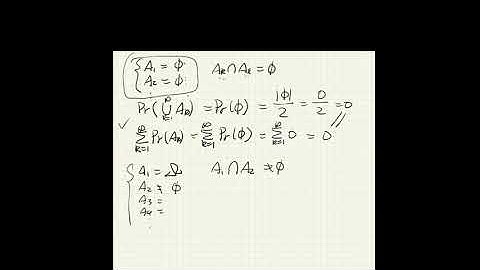 A₁ = ϕ
A₂ = ϕ
⋮
A_k ∩ A_ℓ = ϕ
Pr(⋃_{k=1}^∞ A_k) = Pr(ϕ) = |ϕ|/2 = 0/2 = 0
✓ ∑_{k=1}^∞ Pr(A_k) = ∑_{k=1}^∞ Pr(ϕ) = ∑_{k=1}^∞ 0 = 0
A₁ = Ω A₁ ∩ A₂ ≠ ϕ
A₂ ≠ ϕ
A₃ =
A₄ =
⋮